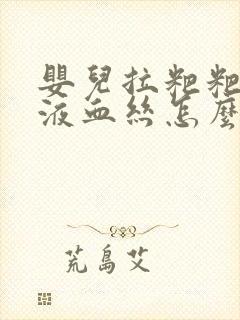 嬰兒拉粑粑
液血絲怎麼
荒島艾